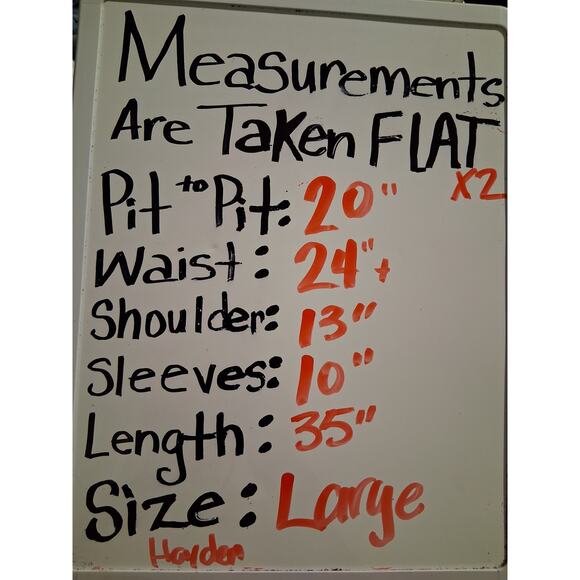 Measurements
Are Taken FLAT
X2
Pit to Pit: 20"
Waist: 24"+
Shoulder: 13"
Sleeves: 10"
Length: 35"
Size: Large
Hayden